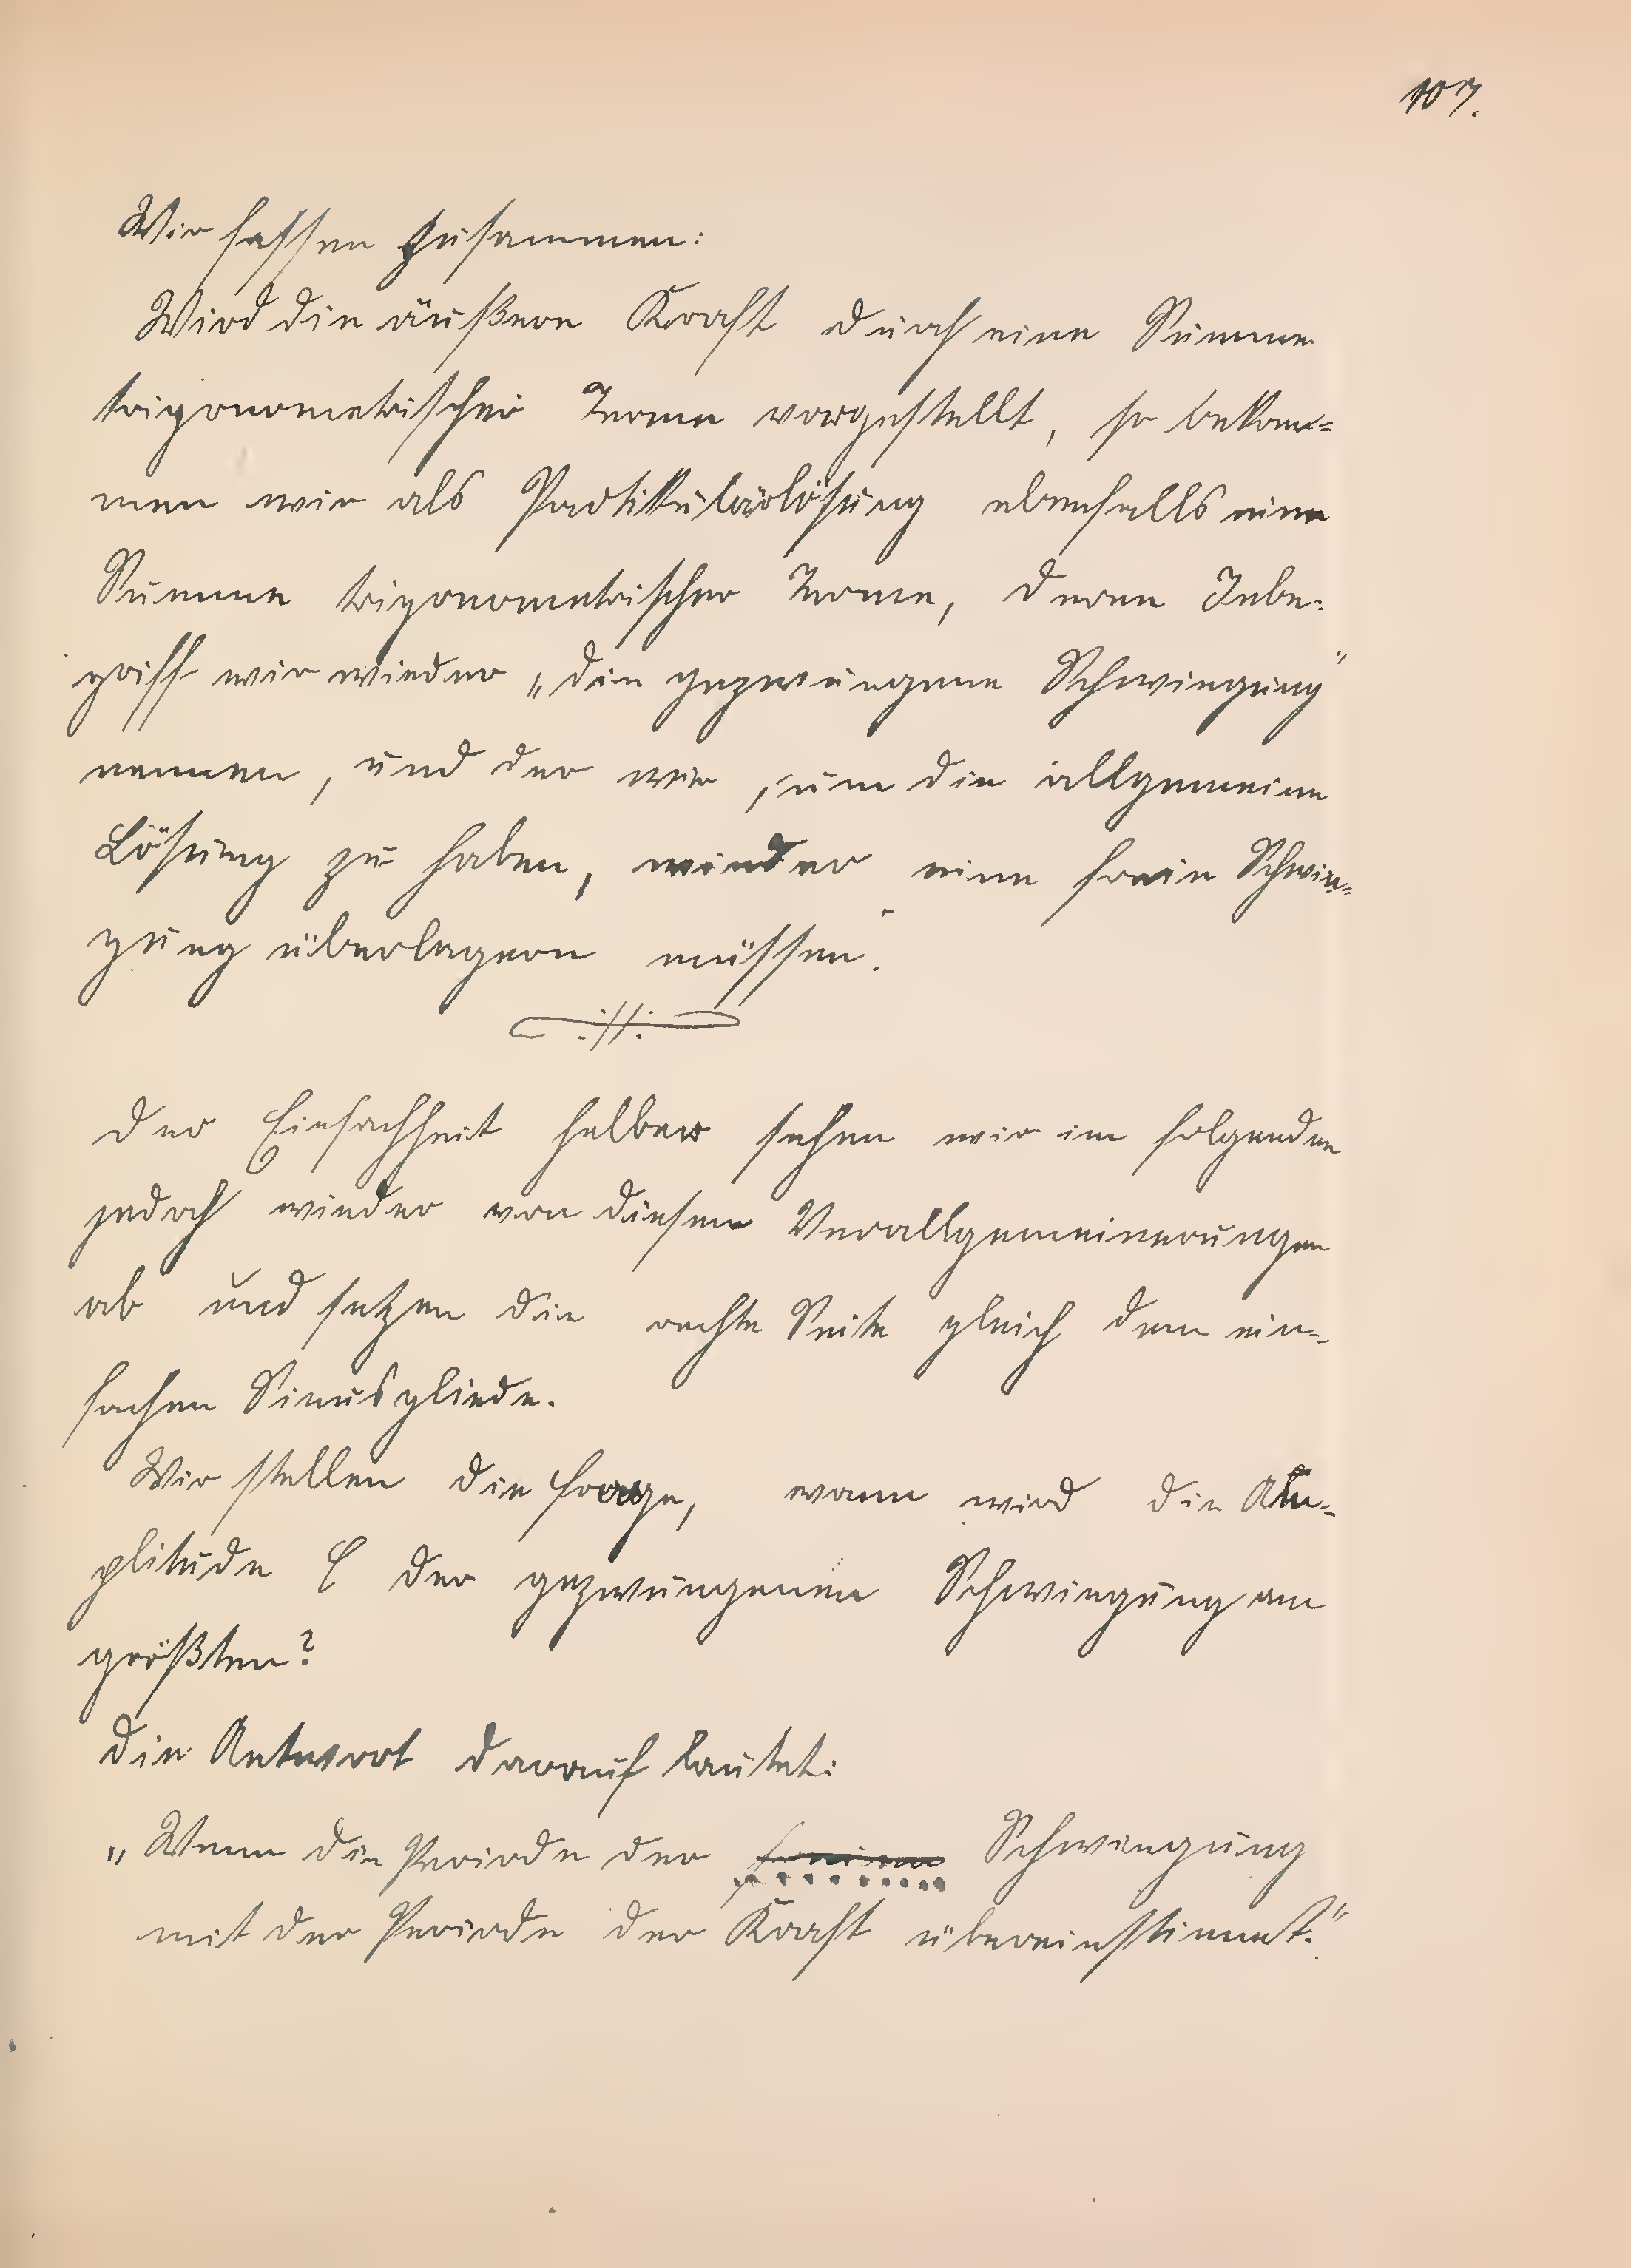 107.
Wir fassen zusammen:
Wird die äußere Kraft durch eine Summe
trigonometrischer Terme vorgestellt, so bekom-
men wir als Partikulärlösung ebenfalls eine
Summe trigonometrischer Terme, deren Inbe-
griff wir wieder „die gezwungene Schwingung"
nennen, und der wir, um die allgemeine
Lösung zu haben, wieder eine freie Schwin-
gung überlagern müssen.
Der Einfachheit halber sehen wir im folgenden
jedoch wieder von diesen Verallgemeinerungen
ab und setzen die rechte Seite gleich dem ein-
fachen Sinusgliede.
Wir stellen die Frage, wann wird die Am-
plitude C der gezwungenen Schwingung am
größten?
Die Antwort darauf lautet:
„Wenn die Periode der freien Schwingung
mit der Periode der Kraft übereinstimmt."